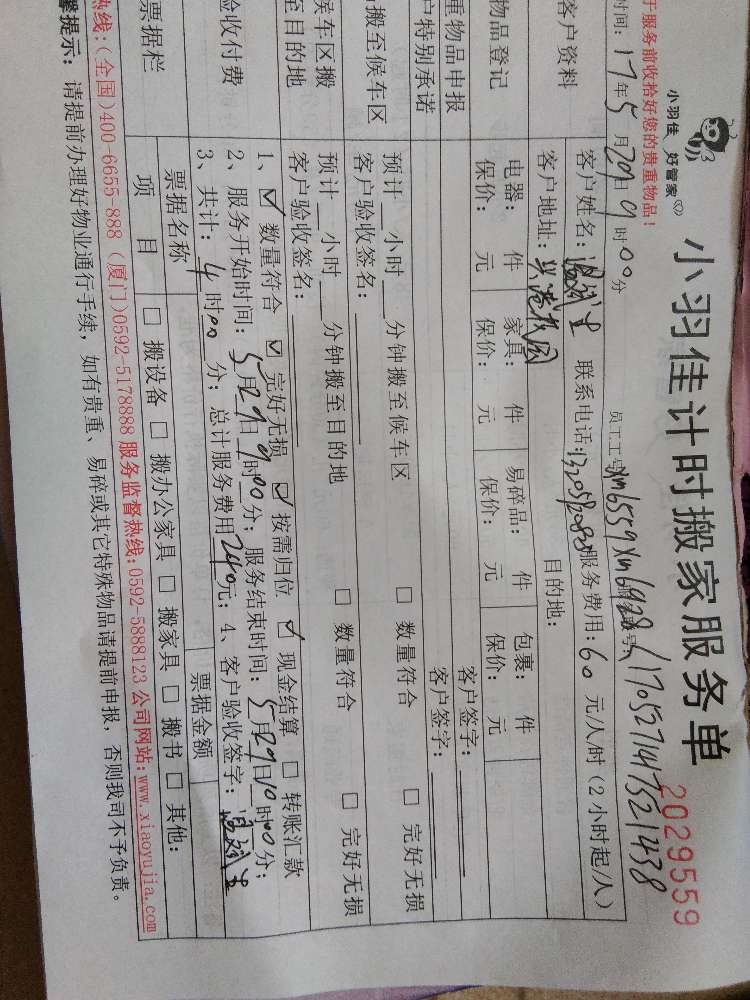 小羽佳 好管家
小羽佳计时搬家服务单
2029559
于服务前收拾好您的贵重物品！
时间：17年5月29日9时00分
员工工号 Xm6559 Xm6928 / 17052714752143８
客户资料
客户姓名： 联系电话： 服务费用：60元/人/时（2小时起/人）
客户地址： 目的地：
物品登记
电器： 件 家具： 件 易碎品： 件 包裹： 件
保价： 元 保价： 元 保价： 元 保价： 元
重物品申报
客户签字：
户特别承诺
客户签字：
搬至候车区
预计 小时 分钟搬至候车区 □ 数量符合 □ 完好无损
客户验收签名：
候车区搬
至目的地
预计 小时 分钟搬至目的地 □ 数量符合 □ 完好无损
客户验收签名：
验收付费
1、☑ 数量符合 ☑ 完好无损 ☑ 按需归位 ☑ 现金结算 □ 转账汇款
2、服务开始时间：5月29日9时00分；服务结束时间：5月29日10时00分；
3、共计：4时00分；总计服务费用240元；4、客户验收签字：
票据栏
票据名称 票据金额
项 目 □ 搬设备 □ 搬办公家具 □ 搬家具 □ 搬书 □ 其他：
热线：(全国)400-6655-888 (厦门)0592-5178888 服务监督热线：0592-5888123 公司网站：www.xiaoyujia.com
馨提示：请提前办理好物业通行手续，如有贵重、易碎或其它特殊物品请提前申报，否则我司不予负责。